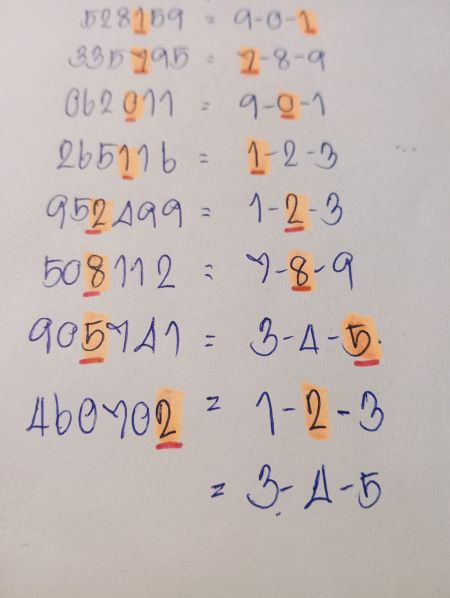 528159 = 9-0-1
335795 = 7-8-9
062011 = 9-0-1
265116 = 1-2-3
952499 = 1-2-3
508112 = 7-8-9
905741 = 3-4-5.
460702 = 1-2-3
= 3-4-5